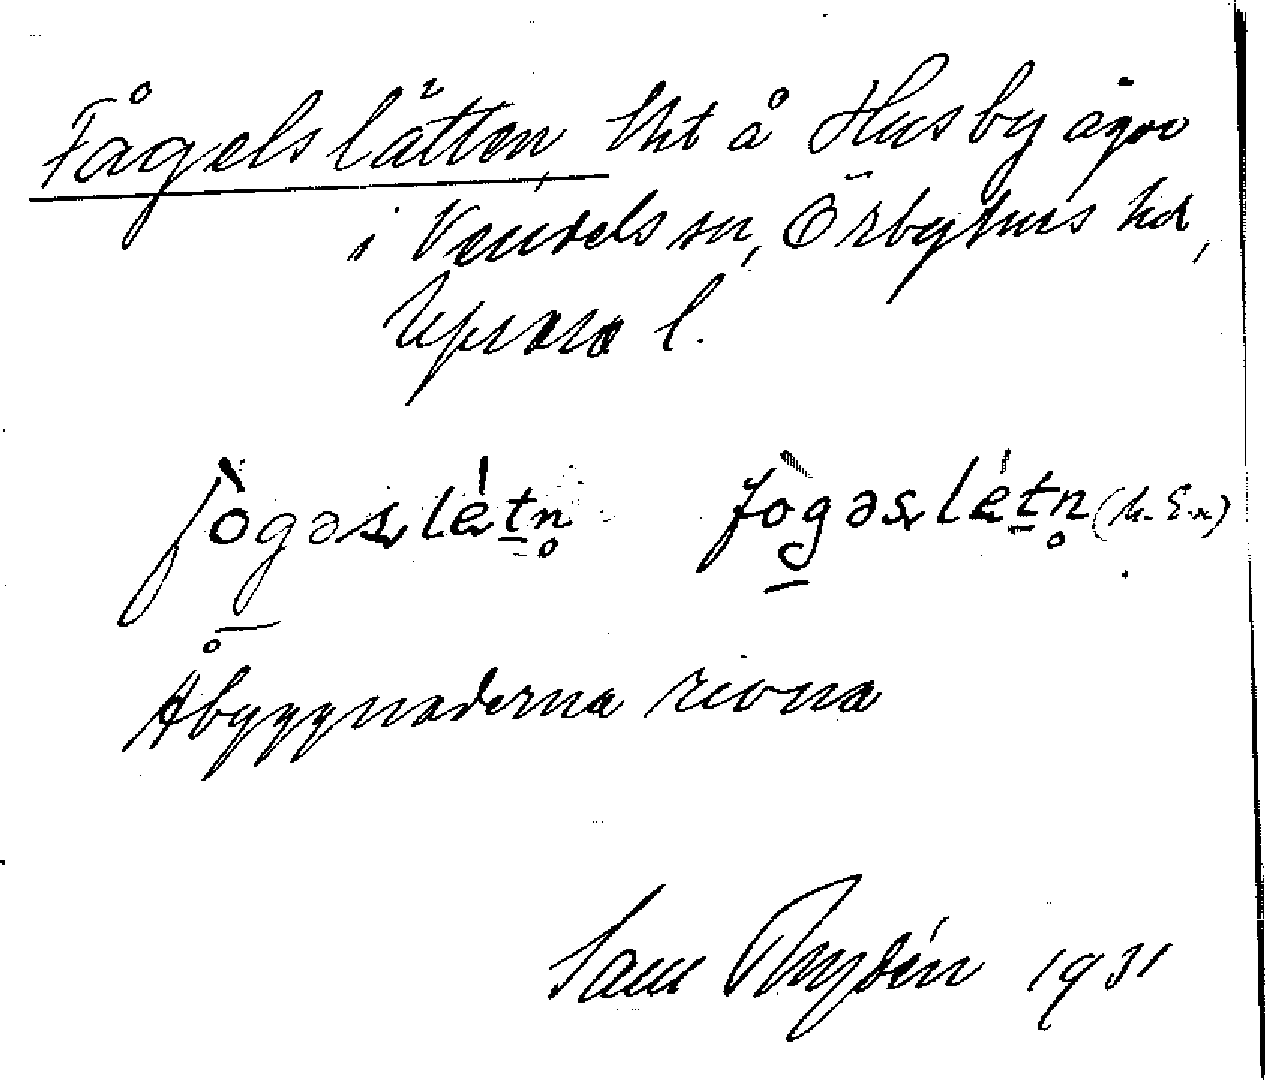 Fågelslätten, tht å Husby ägor
i Vendels sn, Örbyhus hd,
Upsala l.
fògəslétn fògəslétn
Åbyggnaderna rivna
Sam Rydén 1931